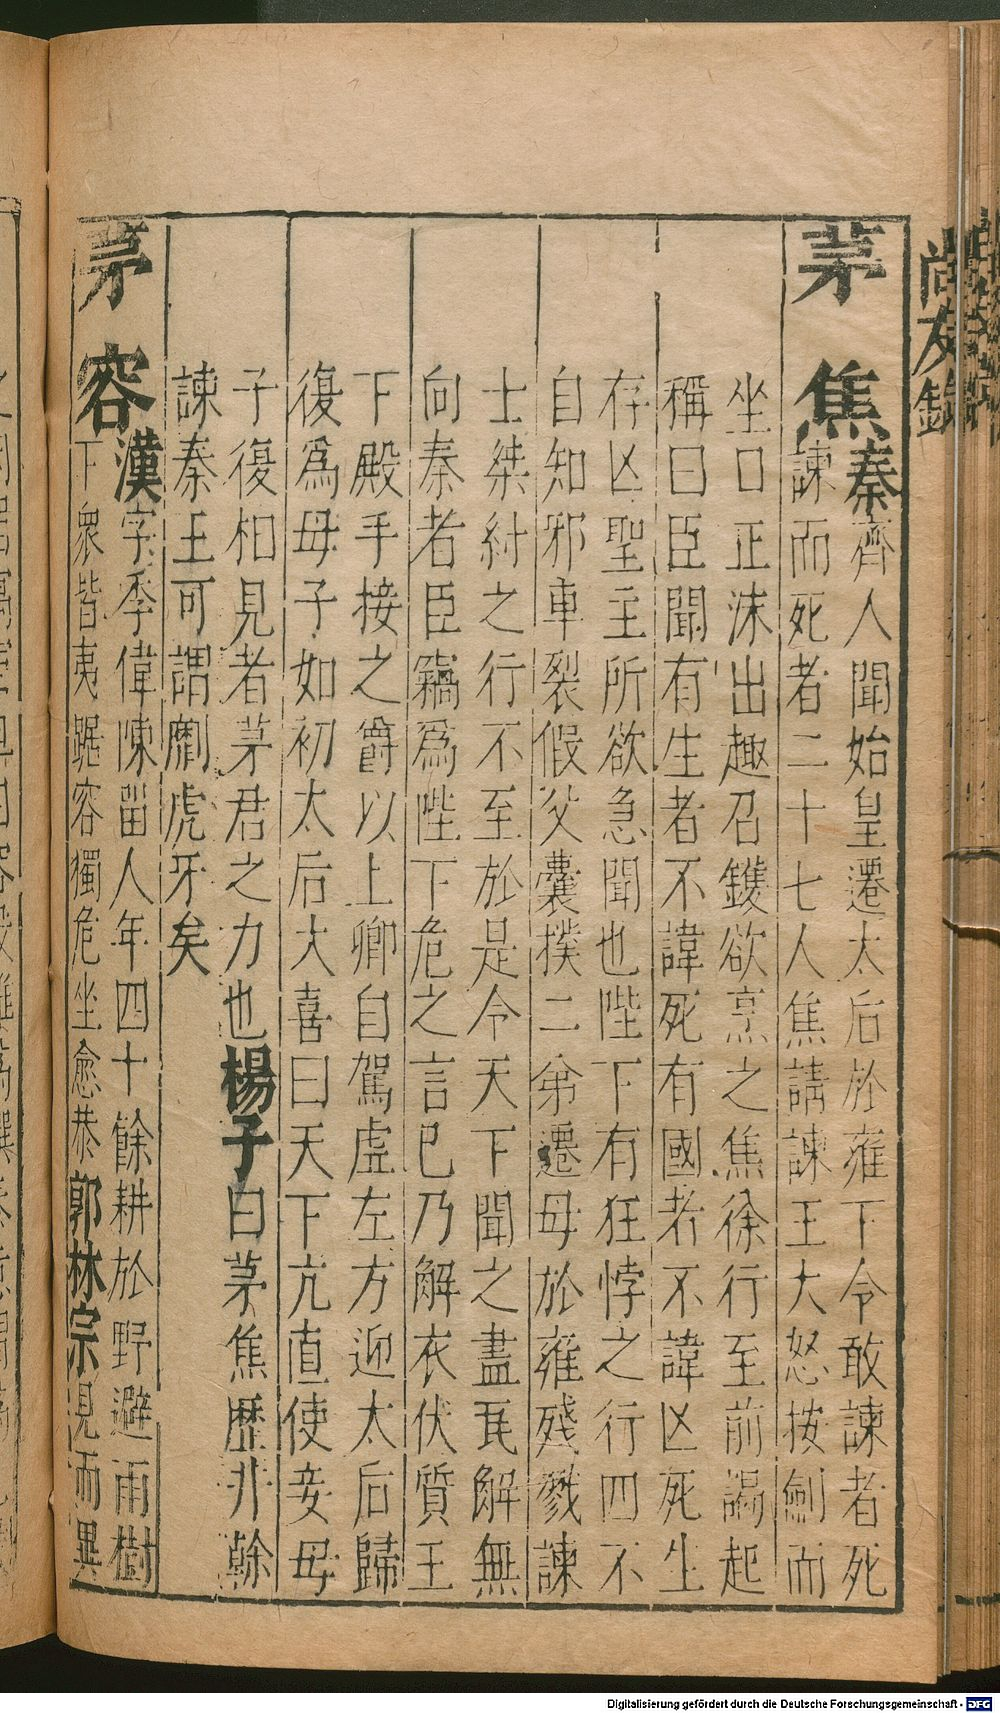 尚友錄
茅焦秦齊人聞始皇遷太后於雍下令敢諫者死
諫而死者二十七人焦請諫王大怒按劍而
坐口正沫出趣召鑊欲烹之焦徐行至前謁起
稱曰臣聞有生者不諱死有國者不諱亡死生
存亡聖主所欲急聞也陛下有狂悖之行四不
自知邪車裂假父囊撲二弟遷母於雍殘戮諫
士桀紂之行不至於是今天下聞之盡瓦解無
向秦者臣竊為陛下危之言已乃解衣伏質王
下殿手接之爵以上卿自駕虛左方迎太后歸
復爲母子如初太后大喜曰天下亢直使妾母
子復相見者茅君之力也楊子曰茅焦歷井幹
諫秦王可謂劘虎牙矣
茅容漢字季偉陳畱人年四十餘耕於野避雨樹
下衆皆夷踞容獨危坐愈恭郭林宗見而異
Digitalisierung gefördert durch die Deutsche Forschungsgemeinschaft - DFG